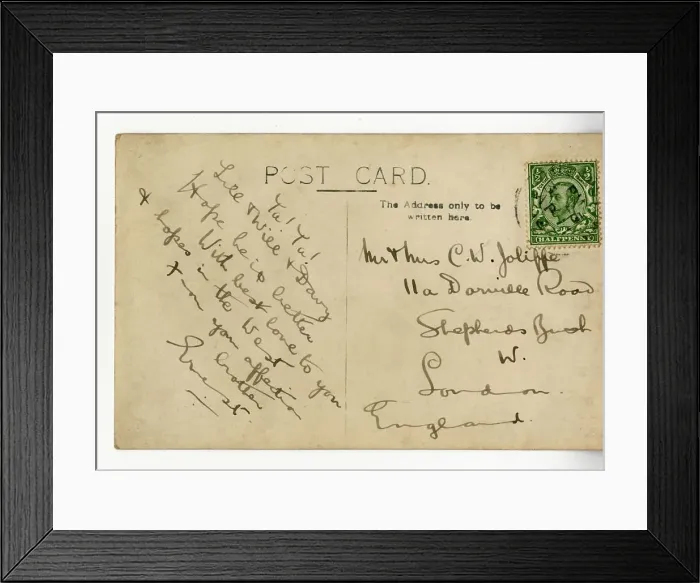 POST CARD.
The Address only to be
written here.
HALFPENNY
Ta! Ta!
Lill & Will & Davy
Hope he is better
With best love to you
& hopes in the West
x on your affection
brother
Ernest.
Mr & Mrs C.W. Joliffe
11a Road
Shepherds Bush
W.
London.
England.